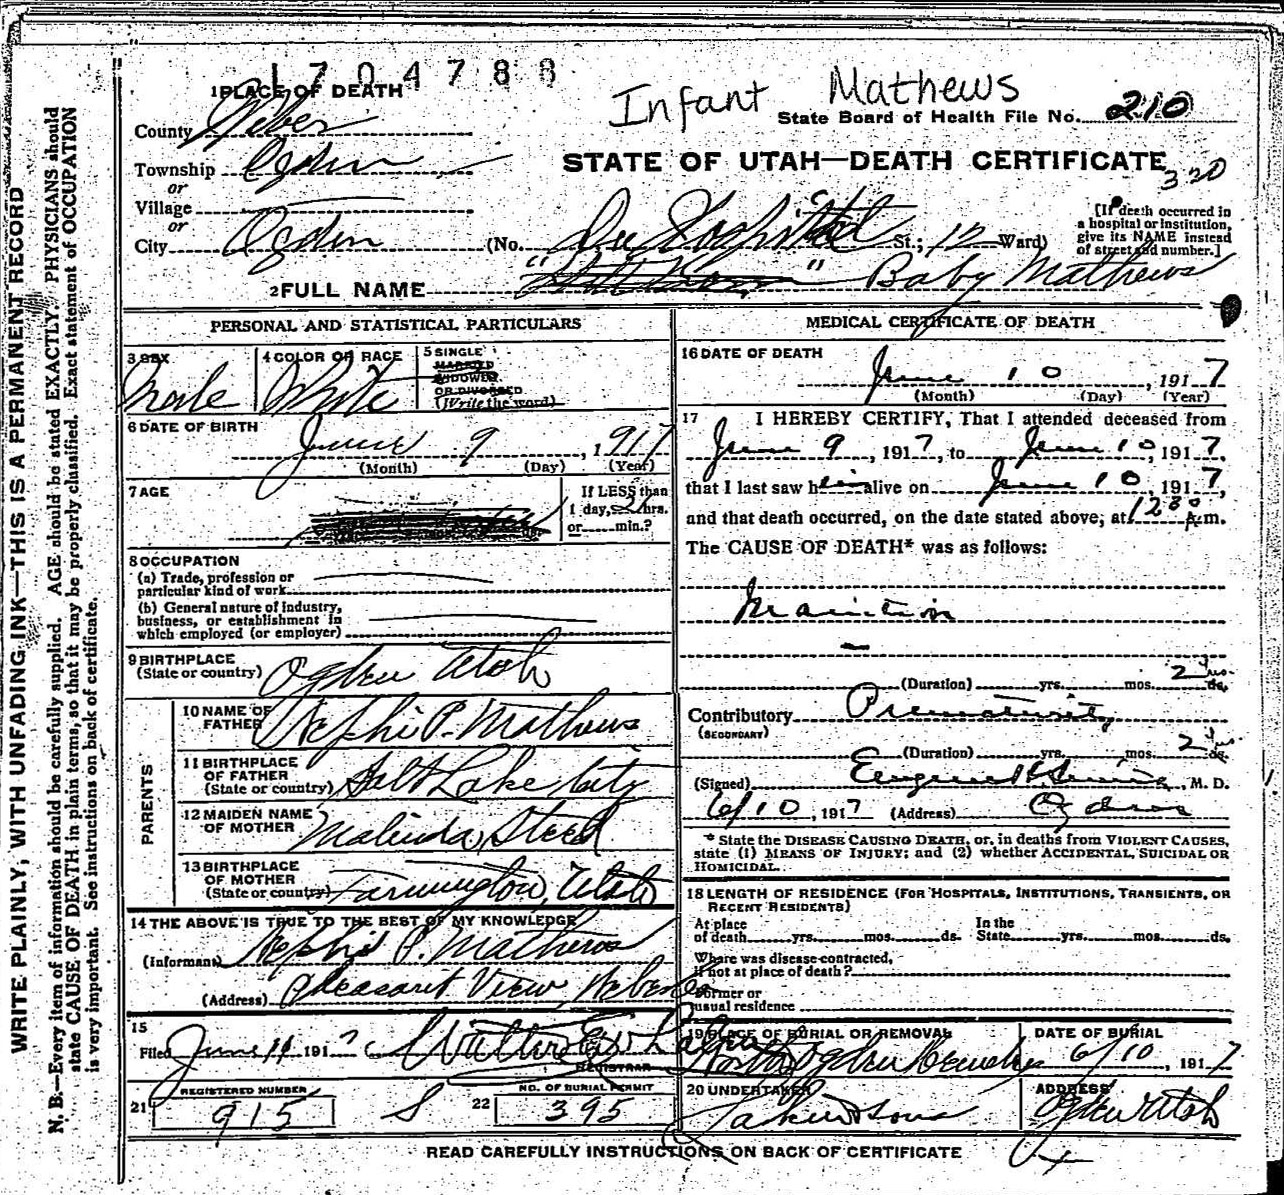 1704788
Infant Mathews
1 PLACE OF DEATH
State Board of Health File No. 210
County Weber
STATE OF UTAH—DEATH CERTIFICATE
320
Township Ogden
or
Village
or
City Ogden (No. Dee Hospital St.; 10 Ward)
[If death occurred in
a hospital or institution,
give its NAME instead
of street and number.]
2 FULL NAME " " Baby Mathews
PERSONAL AND STATISTICAL PARTICULARS
3 SEX
Male
4 COLOR OR RACE
White
5 SINGLE
MARRIED
WIDOWED
OR DIVORCED
(Write the word)
6 DATE OF BIRTH
June 9, 1917
(Month) (Day) (Year)
7 AGE
If LESS than
1 day, hrs.
or min.?
8 OCCUPATION
(a) Trade, profession or
particular kind of work
(b) General nature of industry,
business, or establishment in
which employed (or employer)
9 BIRTHPLACE
(State or country) Ogden Utah
PARENTS
10 NAME OF
FATHER Nephi P. Mathews
11 BIRTHPLACE
OF FATHER
(State or country) Salt Lake City
12 MAIDEN NAME
OF MOTHER Malinda Steed
13 BIRTHPLACE
OF MOTHER
(State or country) Farmington, Utah
14 THE ABOVE IS TRUE TO THE BEST OF MY KNOWLEDGE
(Informant) Nephi P. Mathews
(Address) Pleasant View, Weber Co
15
Filed June 11 1917 Walter E. Whalen
REGISTRAR
REGISTERED NUMBER
21 915 S
NO. OF BURIAL PERMIT
22 395
MEDICAL CERTIFICATE OF DEATH
16 DATE OF DEATH
June 10, 1917
(Month) (Day) (Year)
17 I HEREBY CERTIFY, That I attended deceased from
June 9, 1917, to June 10, 1917.
that I last saw him alive on June 10, 1917,
and that death occurred, on the date stated above, at 1230 m.
The CAUSE OF DEATH* was as follows:
Inanition
(Duration) yrs. mos. 2 ds.
Contributory Prematurity
(SECONDARY)
(Duration) yrs. mos. 2 ds.
(Signed) Eugene H. , M. D.
6/10, 1917 (Address) Ogden
* State the DISEASE CAUSING DEATH, or, in deaths from VIOLENT CAUSES,
state (1) MEANS OF INJURY; and (2) whether ACCIDENTAL, SUICIDAL OR
HOMICIDAL.
18 LENGTH OF RESIDENCE (FOR HOSPITALS, INSTITUTIONS, TRANSIENTS, OR
RECENT RESIDENTS)
At place
of death yrs. mos. ds.
In the
State yrs. mos. ds.
Where was disease contracted,
if not at place of death?
Former or
usual residence
19 PLACE OF BURIAL OR REMOVAL
North Ogden Cemetery
DATE OF BURIAL
6/10, 1917
20 UNDERTAKER
Larkin & Sons
ADDRESS
Ogden Utah
READ CAREFULLY INSTRUCTIONS ON BACK OF CERTIFICATE
WRITE PLAINLY, WITH UNFADING INK—THIS IS A PERMANENT RECORD
N. B.—Every item of information should be carefully supplied. AGE should be stated EXACTLY. PHYSICIANS should
state CAUSE OF DEATH in plain terms, so that it may be properly classified. Exact statement of OCCUPATION
is very important. See instructions on back of certificate.